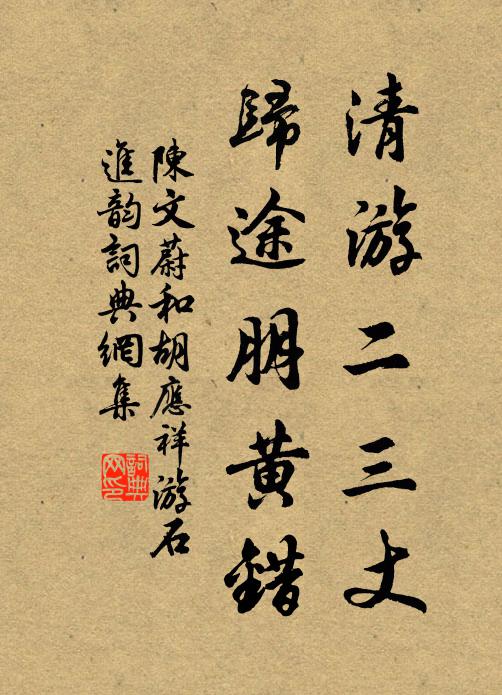 清游二三丈
歸途朋黃錯
陳文蔚和胡應祥游石
進韵詞典網集
詞典网印